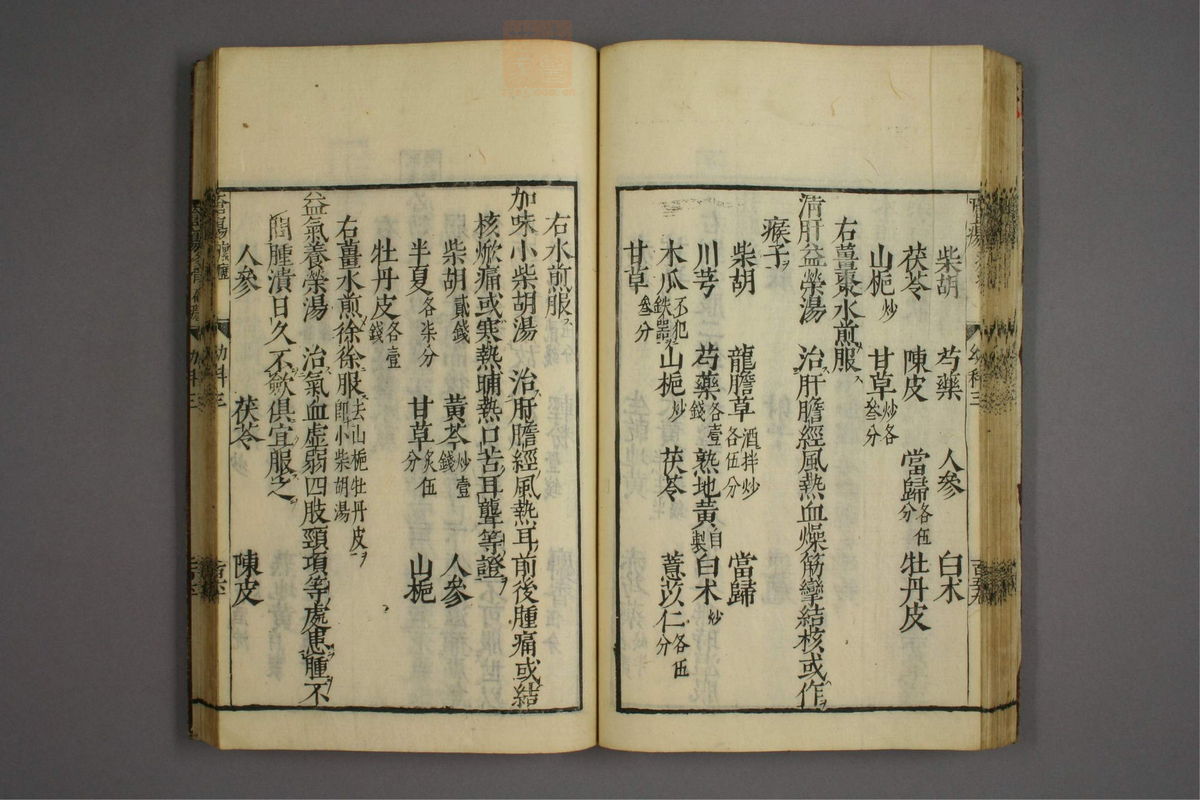 柴胡 芍藥 人參 白朮
茯苓 陳皮 當歸各伍分 牡丹皮
山梔炒 甘草炒各叄分
右薑棗水煎服
清肝益榮湯 治肝膽經風熱血燥筋攣結核或作
瘊子
柴胡 龍膽草酒拌炒各伍分 當歸
川芎 芍藥各壹錢 熟地黃自製 白朮炒
木瓜不犯鉄器 山梔炒 茯苓 薏苡仁各伍分
甘草叄分
右水煎服
加味小柴胡湯 治肝膽經風熱耳前後腫痛或結
核焮痛或寒熱晡熱口苦耳聾等證
柴胡貳錢 黃芩炒壹錢 人參
半夏各柒分 甘草炙伍分 山梔
牡丹皮各壹錢
右薑水煎徐徐服去山梔牡丹皮即小柴胡湯
益氣養榮湯 治氣血虛弱四肢頸項等處患腫不
問腫潰日久不歛俱宜服之
人參 茯苓 陳皮
幼科三